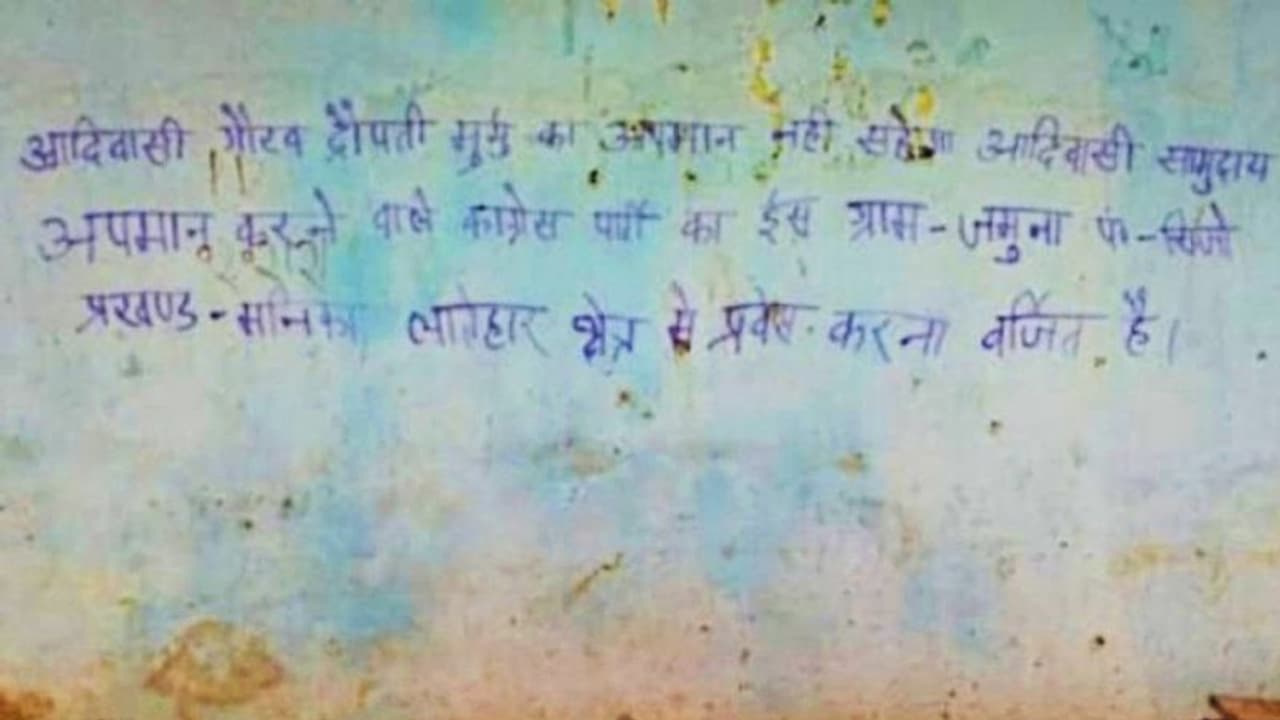 आदिवासी गौरव द्रौपती मुर्मु का अपमान नहीं सहेगा आदिवासी सामुदाय
अपमान करने वाले कांग्रेस पार्टी का इस ग्राम-जमुना पं-
प्रखण्ड-मनिका लातेहार क्षेत्र मे प्रवेस करना वर्जित है।